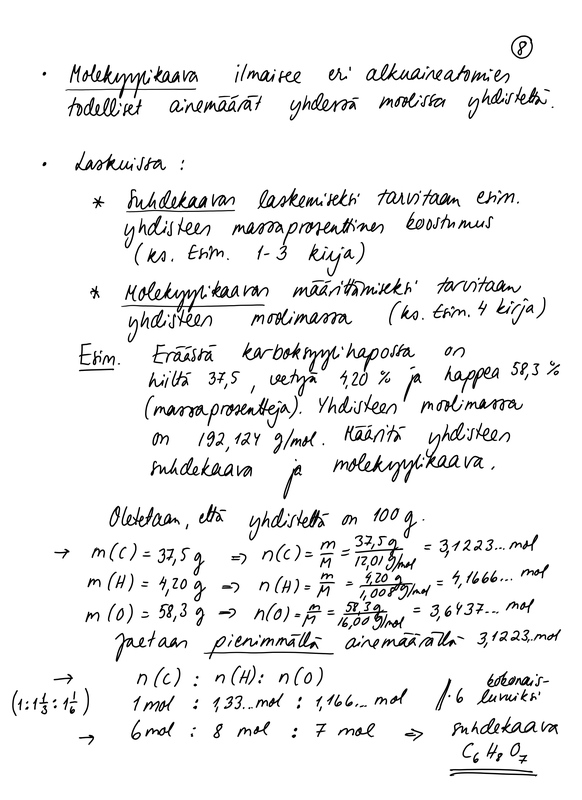 8
• Molekyylikaava ilmaisee eri alkuaineatomien
todelliset ainemäärät yhdessä moolissa yhdistettä.
• Laskuissa :
* Suhdekaavan laskemiseksi tarvitaan esim.
yhdisteen massaprosenttinen koostumus
(ks. Esim. 1-3 kirja)
* Molekyylikaavan määrittämiseksi tarvitaan
yhdisteen moolimassa (ks. Esim. 4 kirja)
Esim. Eräästä karboksyylihaposta on
hiiltä 37,5 , vetyä 4,20 % ja happea 58,3 %
(massaprosentteja). Yhdisteen moolimassa
on 192,124 g/mol. Määritä yhdisteen
suhdekaava ja molekyylikaava.
Oletetaan, että yhdistettä on 100 g.
→ m(C) = 37,5 g ⇒ n(C) = m/M = 37,5 g / 12,01 g/mol = 3,1223... mol
m(H) = 4,20 g ⇒ n(H) = m/M = 4,20 g / 1,008 g/mol = 4,1666... mol
m(O) = 58,3 g ⇒ n(O) = m/M = 58,3 g / 16,00 g/mol = 3,6437... mol
Jaetaan pienimmällä ainemäärällä 3,1223..mol
→ n(C) : n(H) : n(O)
(1:1⅓:1⅙) 1 mol : 1,33...mol : 1,166... mol /·6 kokonais-
luvuiksi
→ 6 mol : 8 mol : 7 mol ⇒ suhdekaava
C₆H₈O₇